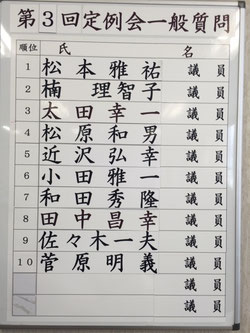 第3回定例会一般質問
順位 氏 名
1 松本雅祐 議員
2 楠 理智子 議員
3 太田幸一 議員
4 松原和男 議員
5 近沢弘幸 議員
6 小田雅一 議員
7 和田秀隆 議員
8 田中昌幸 議員
9 佐々木一夫 議員
10 菅原明義 議員
議員
議員